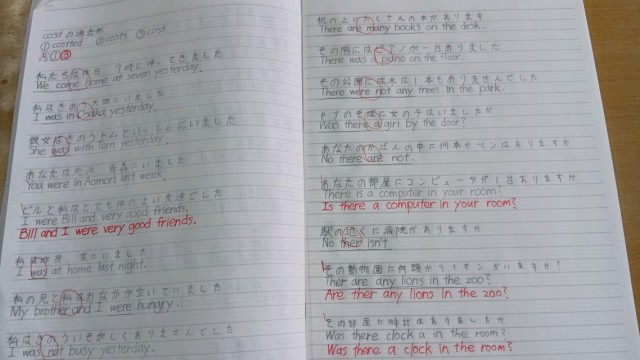 costの過去形
① costted ② costs ③ cost
A ① ③
私たちは昨日、7時に帰ってきました
We come home at seven yesterday.
私はきのう大阪にいました
I was in Osaka yesterday.
彼女はきのうトムといっしょにいました
She was with Tom yesterday.
あなたは先週、青森にいました
You were in Aomori last week.
ビルと私はとても仲のよい友達でした
I were Bill and very good friends.
Bill and I were very good friends.
私は昨夜 家にいました
I was at home last night.
私の兄と私はおなかが空いていました
My brother and I were hungry.
私はきのういそがしくありませんでした
I was not busy yesterday.
机の上にたくさんの本があります
There are many books on the desk.
その階にはピアノが一台ありました
There was a piano on the floor.
その公園には木は1本もありませんでした
There were not any trees in the park.
ドアのそばに女の子はいましたか
Was there a girl by the door?
あなたのかばんの中に何本かペンはありますか
No there are not.
あなたの部屋にコンピュータが1台ありますか
There is a computer in your room?
Is there a computer in your room?
駅の近くに病院がありますか
No ther isn't.
その動物園に何頭かライオンがいますか?
Ther are any lions in the zoo?
Are ther any lions in the zoo?
その部屋に時計はありましたか
Was there clock a in the room?
Was there a clock in the room?